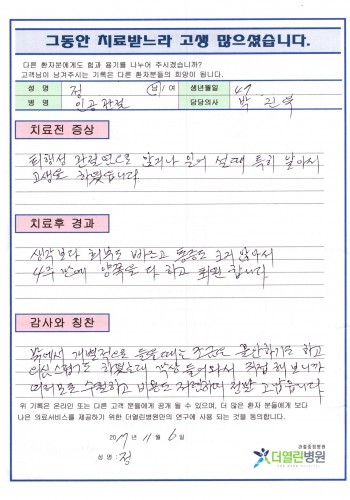 그동안 치료받느라 고생 많으셨습니다.
다른 환자분에게도 힘과 용기를 나누어 주시겠습니까?
고객님이 남겨주시는 기록은 다른 환자분들의 희망이 됩니다.
성 명 정 남 / 여 생년월일 47
병 명 인공관절 담당의사 박진억
치료전 증상
퇴행성 관절염으로 앉거나 일어 설때 특히 많아서
고생을 하였습니다
치료후 경과
생각보다 회복도 빠르고 통증도 크지 않아서
4주만에 양쪽을 다 하고 퇴원 합니다
감사와 칭찬
밖에서 개별적으로 들을때는 조금은 불안하기도 하고
의심스럽기도 하였는데 막상 들어와서 직접 해보니까
여러모로 수월하고 비용도 저렴하며 정말 고맙습니다
위 기록은 온라인 또는 다른 고객 분들에게 공개 될 수 있으며, 더 많은 환자 분들에게 보다
나은 의료서비스를 제공하기 위한 더열린병원만의 연구에 사용 되는 것을 동의합니다.
2017년 11월 6일
성 명 : 정
관절중점병원
더열린병원